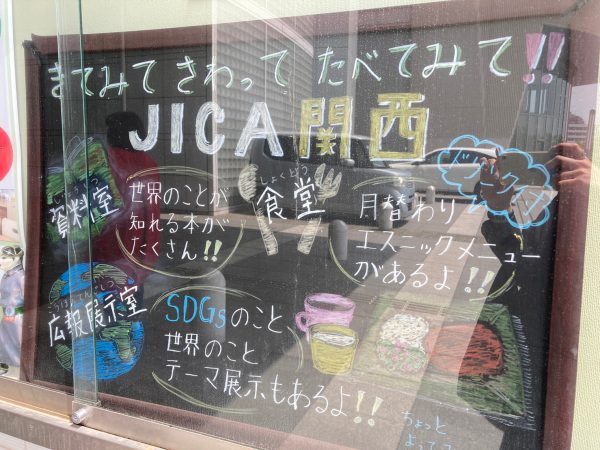 きてみて さわって たべてみて!!
JICA関西
資料室
世界のことが
知れる本が
たくさん!!
しょくどう
食堂
月替わり
エスニックメニュー
があるよ!!
広報展示室
SDGsのこと
世界のこと
テーマ展示もあるよ!!
ちょっと